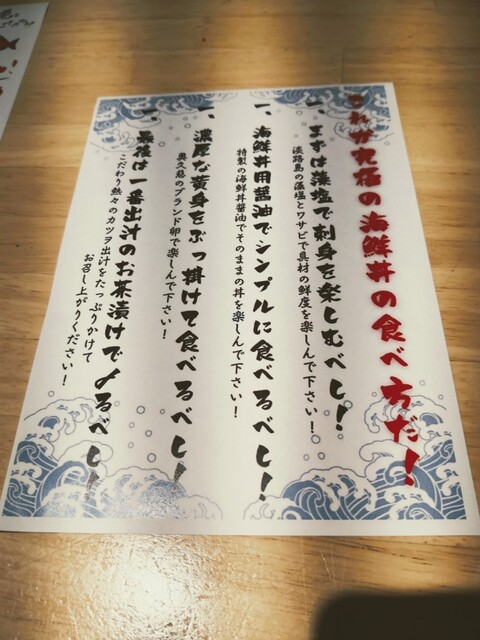 これが究極の海鮮丼の食べ方だ！
一、まずは藻塩で刺身を楽しむべし！
淡路島の藻塩とワサビで具材の鮮度を楽しんで下さい！
一、海鮮丼用醤油でシンプルに食べるべし！
特製の海鮮丼醤油でそのままの丼を楽しんで下さい！
一、濃厚な黄身をぶっ掛けて食べるべし！
奥久慈のブランド卵で楽しんで下さい！
一、最後は一番出汁のお茶漬けで〆るべし！
こだわり熱々のカツヲ出汁をたっぷりかけて
お召し上がりください！